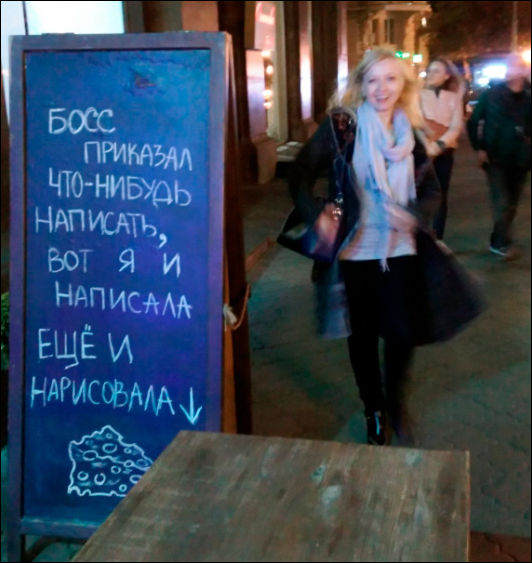 БОСС
ПРИКАЗАЛ
ЧТО-НИБУДЬ
НАПИСАТЬ,
ВОТ Я И
НАПИСАЛА
ЕЩЁ И
НАРИСОВАЛА ↓